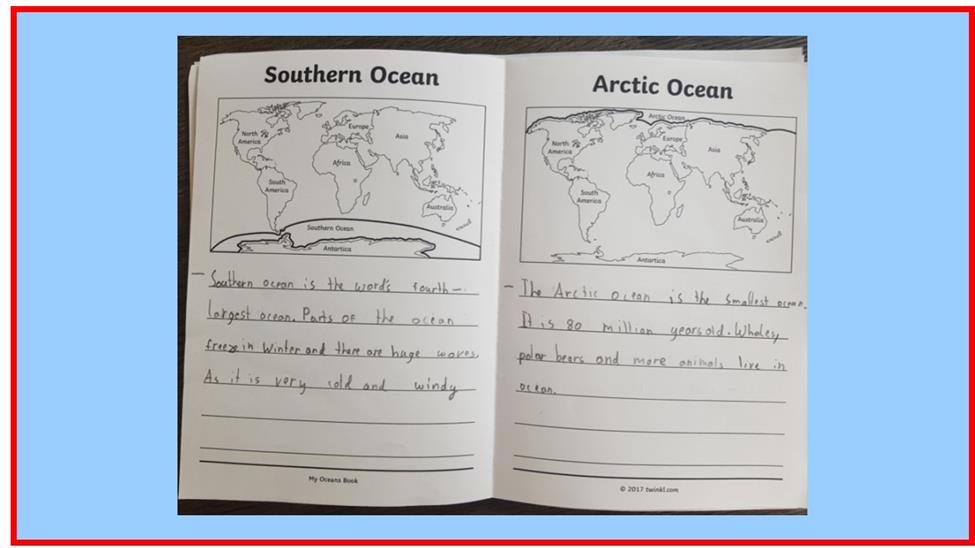 Southern Ocean
North
America
Europe
Asia
Africa
South
America
Australia
Southern Ocean
Antartica
Southern ocean is the word's fourth-
largest ocean. Parts of the ocean
freeze in Winter and there are huge waves.
As it is very cold and windy
My Oceans Book
Arctic Ocean
Arctic Ocean
North
America
Europe
Asia
Africa
South
America
Australia
Antartica
The Arctic ocean is the smallest ocean.
It is 80 million years old. Whales,
polar bears and more animals live in
ocean.
© 2017 twinkl.com